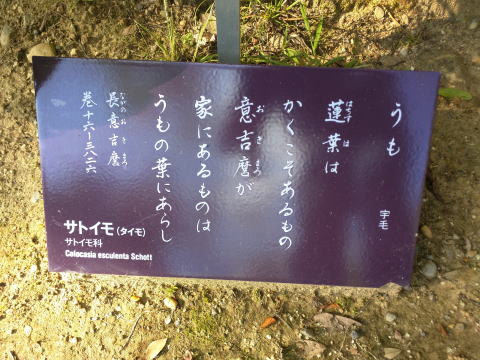 うも
宇毛
蓮葉は
はちす
は
かくこそあるもの
意吉麿が
おきまつ
家にあるものは
うもの葉にあらし
長意吉麿
ながのおきまつ
巻十六―三八二六
サトイモ(タイモ)
サトイモ科
Colocasia esculenta Schott